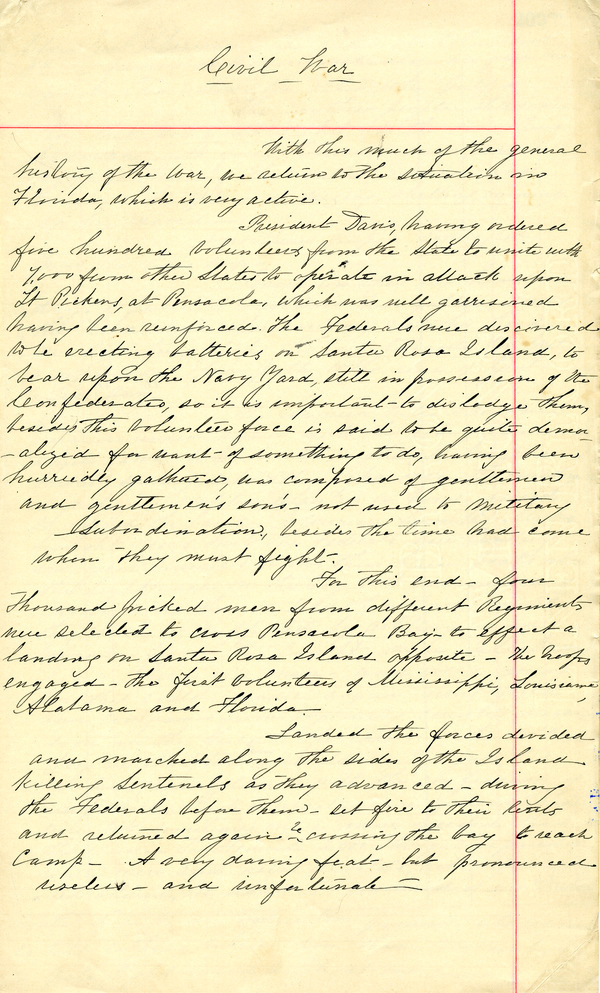 Civil War
With this much of the general
history of the War, we return to the situation in
Florida, which is very active.
President Davis, having ordered
five hundred volunteers from the State to unite with
7,000 from other States to operate in attack upon
Ft Pickens, at Pensacola, which was well garrisoned
having been reinforced. The Federals were discovered
to be erecting batteries on Santa Rosa Island, to
bear upon the Navy Yard, still in possession of the
Confederates, so it is important to dislodge them,
besides this volunteer force is said to be quite demor
-alized for want of something to do, having been
hurriedly gathered, was composed of gentlemen
and gentlemen's son's - not used to military
subordination, besides the time had come
when they must fight.
For this end - four
Thousand picked men from different Regiments
were selected to cross Pensacola Bay - to effect a
landing on Santa Rosa Island opposite - The troops
engaged - the first volunteers of Mississippi, Louisiana,
Alabama and Florida
Landed the forces divided
and marched along the sides of the Island
killing Sentenels as they advanced - driving
the Federals before them - set fire to their tents
and returned again re-crossing the bay to reach
Camp - A very daring feat - but pronounced
useless - and unfortunate -